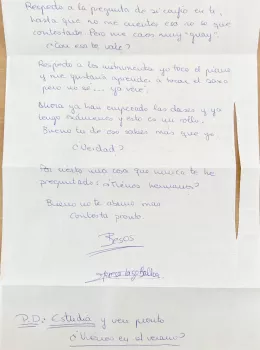 Respecto a la pregunta de si confío en ti,
hasta que no me cuentes eso no se que
contestarte. Pero me caes muy "guay".
¿Con eso te vale?
Respecto a los instrumentos yo toco el piano
y me gustaría aprender a tocar el saxo
pero no se... ya veré.
Ahora ya han empezado las clases y ya
tengo exámenes y esto es un rollo.
Bueno tu de eso sabes más que yo
¿Verdad?
Por cierto una cosa que nunca te he
preguntado: ¿Tienes hermanos?
Bueno no te aburro más
Contesta pronto.
Besos
P.D.: Estudia y ven pronto
¿Vienes en el verano?